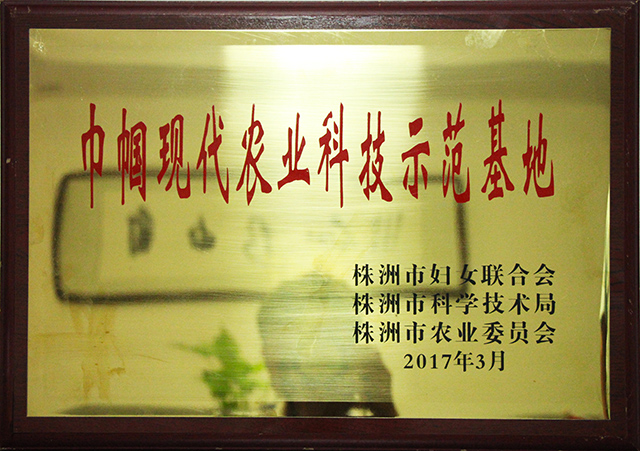 巾帼现代农业科技示范基地
株洲市妇女联合会
株洲市科学技术局
株洲市农业委员会
2017年3月